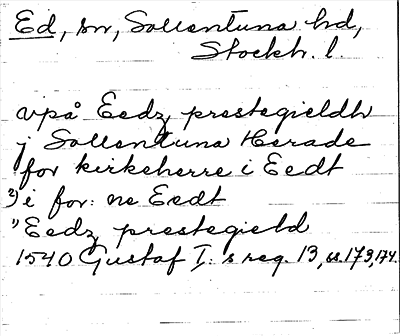 Ed, sn, Sollentuna hd,
Stockh. l.
vpå Eedz prestegieldh
j Sollentuna Herade
for kirkeherre i Eedt
2) i for: ne Eedt
" Eedz prestegield
1540 Gustaf I: s reg. 13, ss. 173, 174.